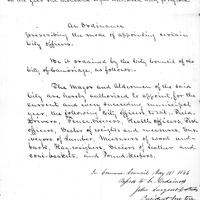 An Ordinance
Prescribing the mode of appointing certain
City Officers.
Be it ordained by the City Council of the
City of Cambridge, as follows.
The Mayor and Aldermen of the said
City are hereby authorized to appoint, for the
present and every succeeding municipal
year, the following City officers, to wit, Field
Drivers, Fence Viewers, Health Officers, Fish
officers, Sealer of weights and measures, Sur-
veyors of Lumber, Measurers of wood and
bark, Hayweighers, Sealers of leather and
coal-baskets, and Pound Keepers.
In Common Council, May 18, 1846
Passed to be Ordained
John Sargent
President